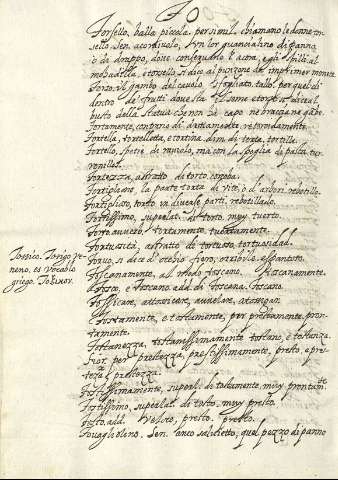 TO
Torsello, balla piccola. per simil. chiamano le donne tor
sello. Sen. acoriuolo, Un lor guancialino di panno,
o da drappo, dove conservanlo l'acora, e gli spilli al
mohadilla, e torsello si dice al punzone da imprimer monete
Torso, il gambo del cavolo. Sfogliato tallo. per quel di
dentro de' frutti dove sta il seme e torso si dice al
busto della statua che non ha capo ne braccia ne gabe.
Tortamente, contrario di drittamente, retorcidamente.
Tortella, tortelletta, e tortina, dim. di torta, tortilla.
Tortello, spetie di raviuolo, ma con la spoglia di pasta, tur
ronillo.
Tortezza, astratto di torto, corcoba.
Tortigliano, la parte torta di vite, o d'arbori. rebotillo.
Tortigliato, torto in diverse parti, rebotillado.
Tortissimo, superlat. di torto, muy tuerto.
Torto avverb. tortamente. tuertamente.
Tortuosità, astratto di tortuoso, tortuosidad.
Torvo, si dice d'occhio fiero, orribile, espantoso.
Toscanamente, al modo toscano. Toscanamente.
Tosco, e Toscano add. di Toscana. Toscano.
Tossicare, attossicare, avvelare, atosigar.
Tostamente, e testamente, per prestamente, pron-
tamente.
Tostanezza, tostanissimamente tostano, e tostanza.
Fior. per prestezza, prestissimamente, presto, e pre-
steza e prestezza.
Tostissimamente, superl. di tostamente, muy prontamte
Tostissimo, superlat. di tosto. muy presto.
Tosto. add. Veloce, presto. presto.
Tovagliolino. Sen. anco salvietto, quel pezzo di panno
Tossico. Tosigo ve-
neno, es Vocablo
griego. Toxinov.